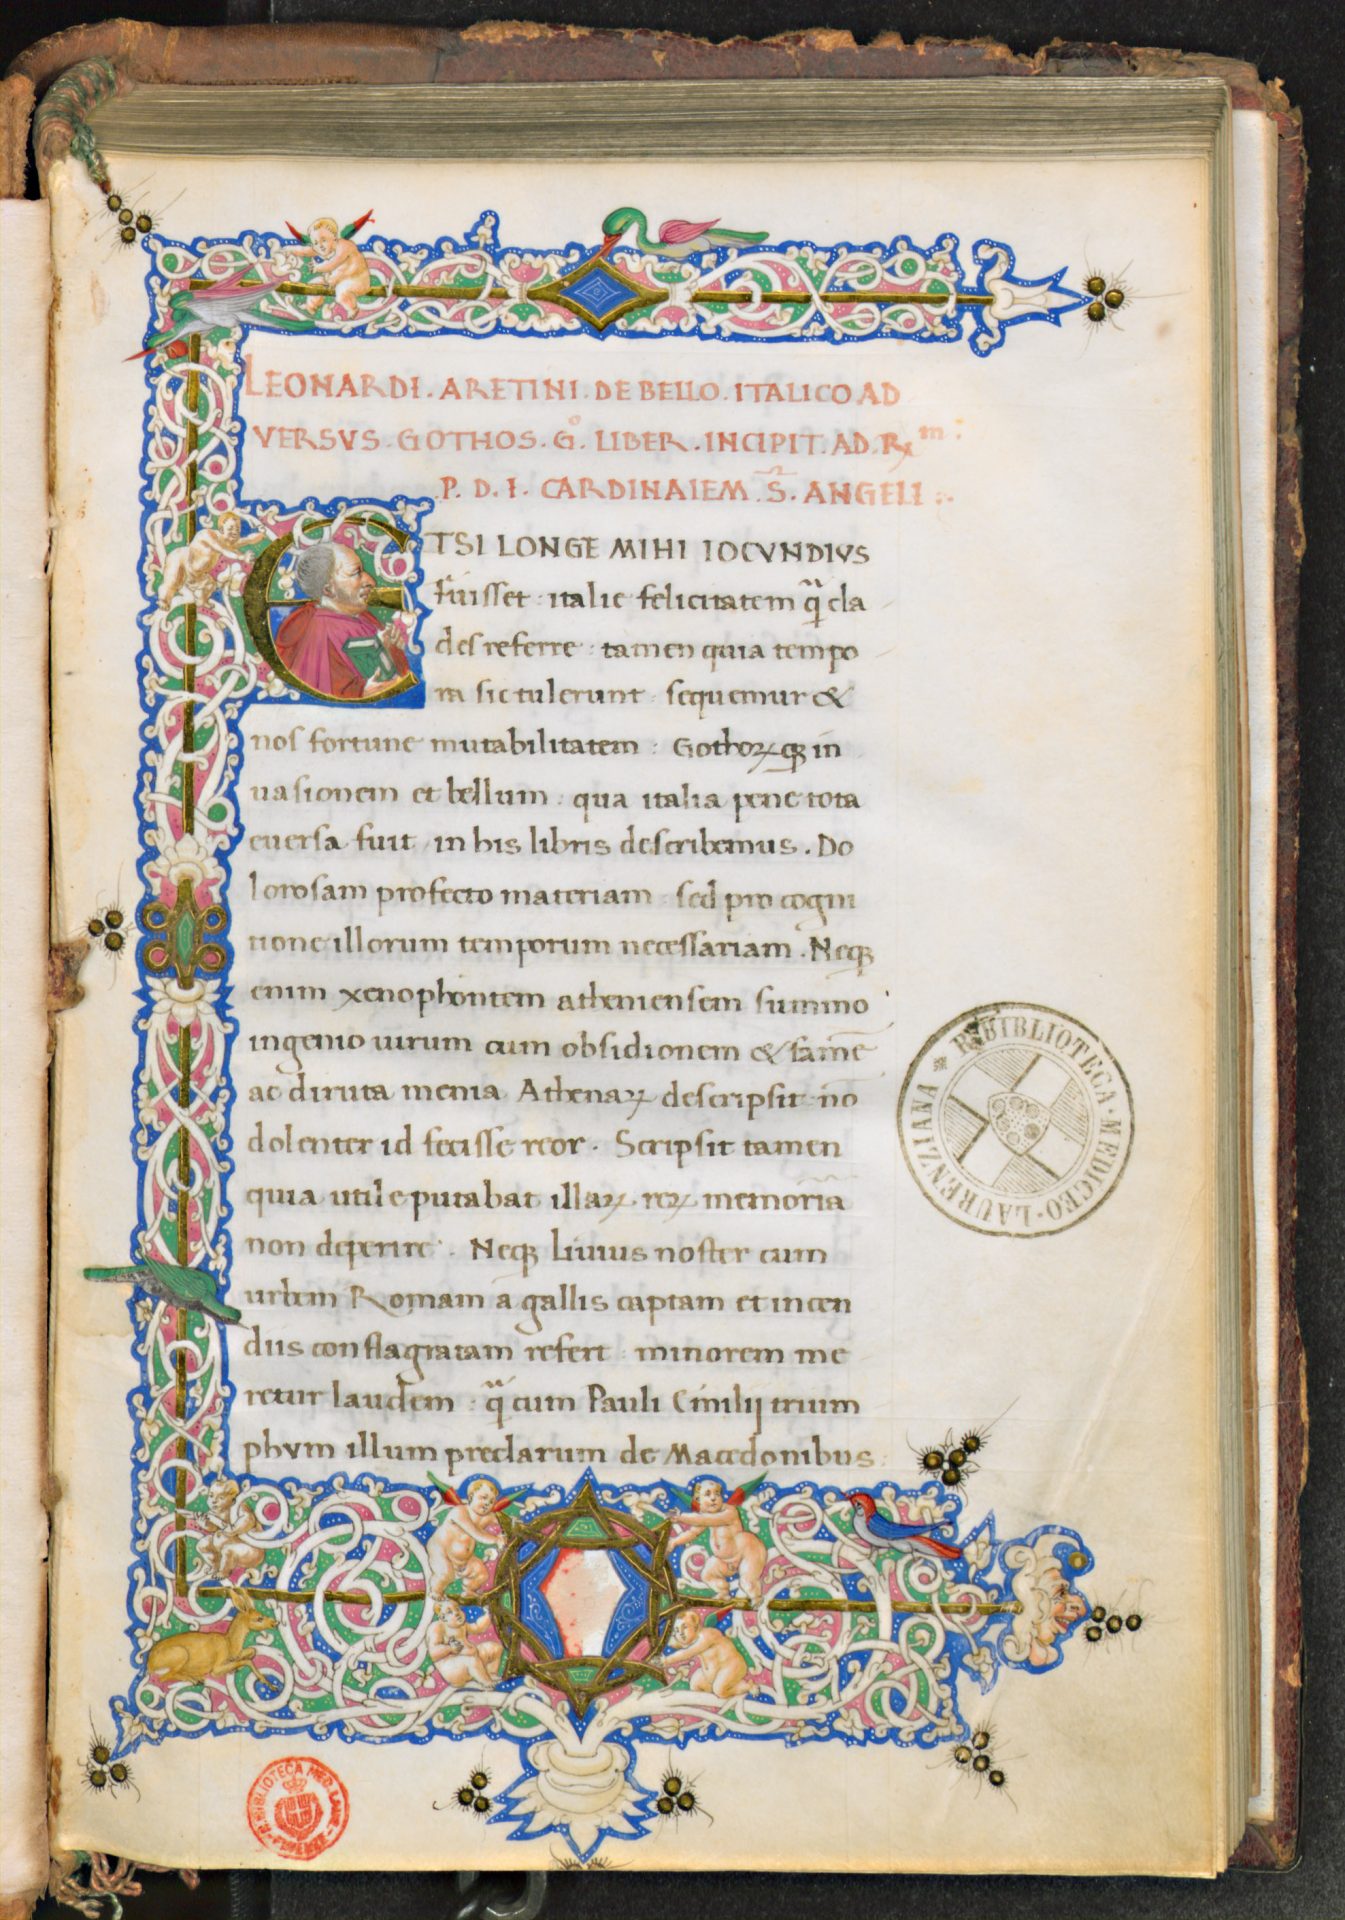 LEONARDI. ARETINI. DE BELLO. ITALICO AD
VERSVS. GOTHOS. G͠. LIBER. INCIPIT. AD. R.ᵐ:
.P. D. I. CARDINALEM. S͠. ANGELI:.
ETSI LONGE MIHI IOCVNDIVS
fuisset italie felicitatem q̃ cla
des referre: tamen quia tempo
ra sic tulerunt sequemur &
nos fortune mutabilitatem: Gothoꝝꝗ in
uasionem et bellum: qua italia pene tota
euersa fuit in his libris describemus. Do
lorosam profecto materiam sed pro cogni
tione illorum temporum necessariam. Neqꝫ
enim xenophontem atheniensem summo
ingenio uirum cum obsidionem & famē
ac diruta menia Athenaꝝ descripsit nō
dolenter id fecisse reor. Scripsit tamen
quia utile putabat illaꝝ reꝝ memoriā
non deperire. Neqꝫ Liuius noster cum
urbem Romam a gallis captam et incen
diis conflagratam refert: minorem me
retur laudem: q̃ cum Pauli Emilij trium
phvm illum preclarum de Macedonibus:
R. BIBLIOTECA·MEDICEO·LAURENZIANA
R. BIBLIOTECA MED. LAUR. FIRENZE